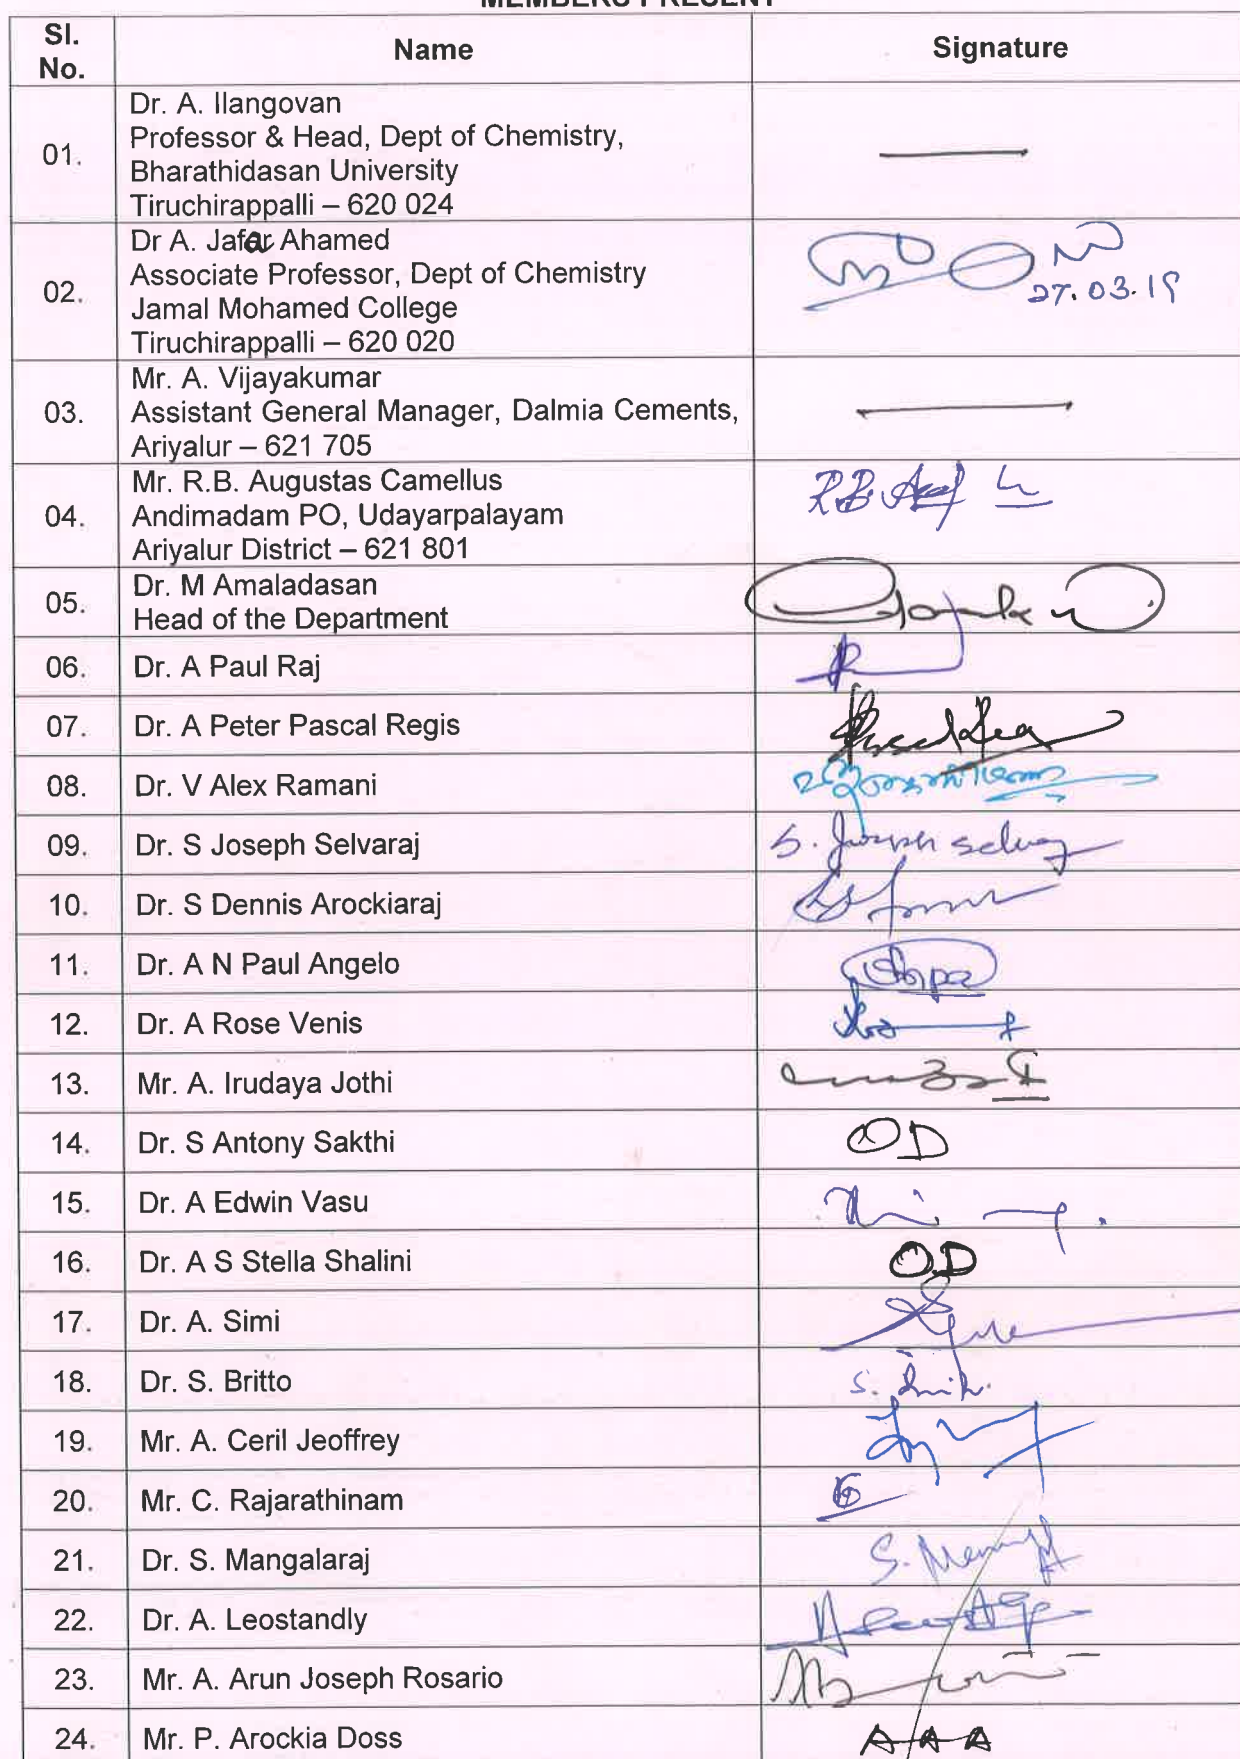 MEMBERS PRESENT
Sl. No. Name Signature
01.
Dr. A. Ilangovan
Professor & Head, Dept of Chemistry,
Bharathidasan University
Tiruchirappalli – 620 024
02.
Dr A. Jafar Ahamed
Associate Professor, Dept of Chemistry
Jamal Mohamed College
Tiruchirappalli – 620 020
27.03.19
03.
Mr. A. Vijayakumar
Assistant General Manager, Dalmia Cements,
Ariyalur – 621 705
04.
Mr. R.B. Augustas Camellus
Andimadam PO, Udayarpalayam
Ariyalur District – 621 801
05.
Dr. M Amaladasan
Head of the Department
06. Dr. A Paul Raj
07. Dr. A Peter Pascal Regis
08. Dr. V Alex Ramani
09. Dr. S Joseph Selvaraj S. Joseph Selvaraj
10. Dr. S Dennis Arockiaraj
11. Dr. A N Paul Angelo
12. Dr. A Rose Venis
13. Mr. A. Irudaya Jothi
14. Dr. S Antony Sakthi OD
15. Dr. A Edwin Vasu
16. Dr. A S Stella Shalini O.D
17. Dr. A. Simi
18. Dr. S. Britto
19. Mr. A. Ceril Jeoffrey
20. Mr. C. Rajarathinam
21. Dr. S. Mangalaraj
22. Dr. A. Leostandly
23. Mr. A. Arun Joseph Rosario
24. Mr. P. Arockia Doss A A A